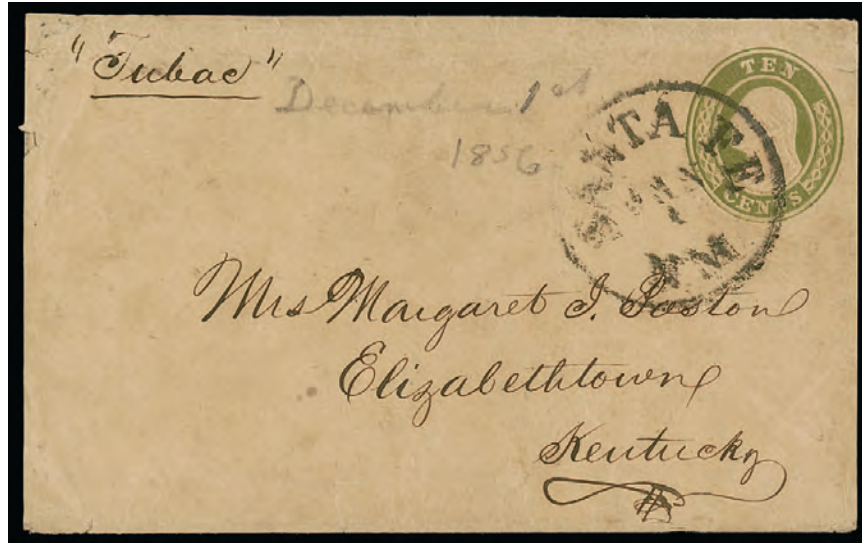 "Tubac"
December 1st
1856
TEN
CENTS
SANTA FE
JAN
1
N.M.
Mrs Margaret J. Poston
Elizabethtown
Kentucky